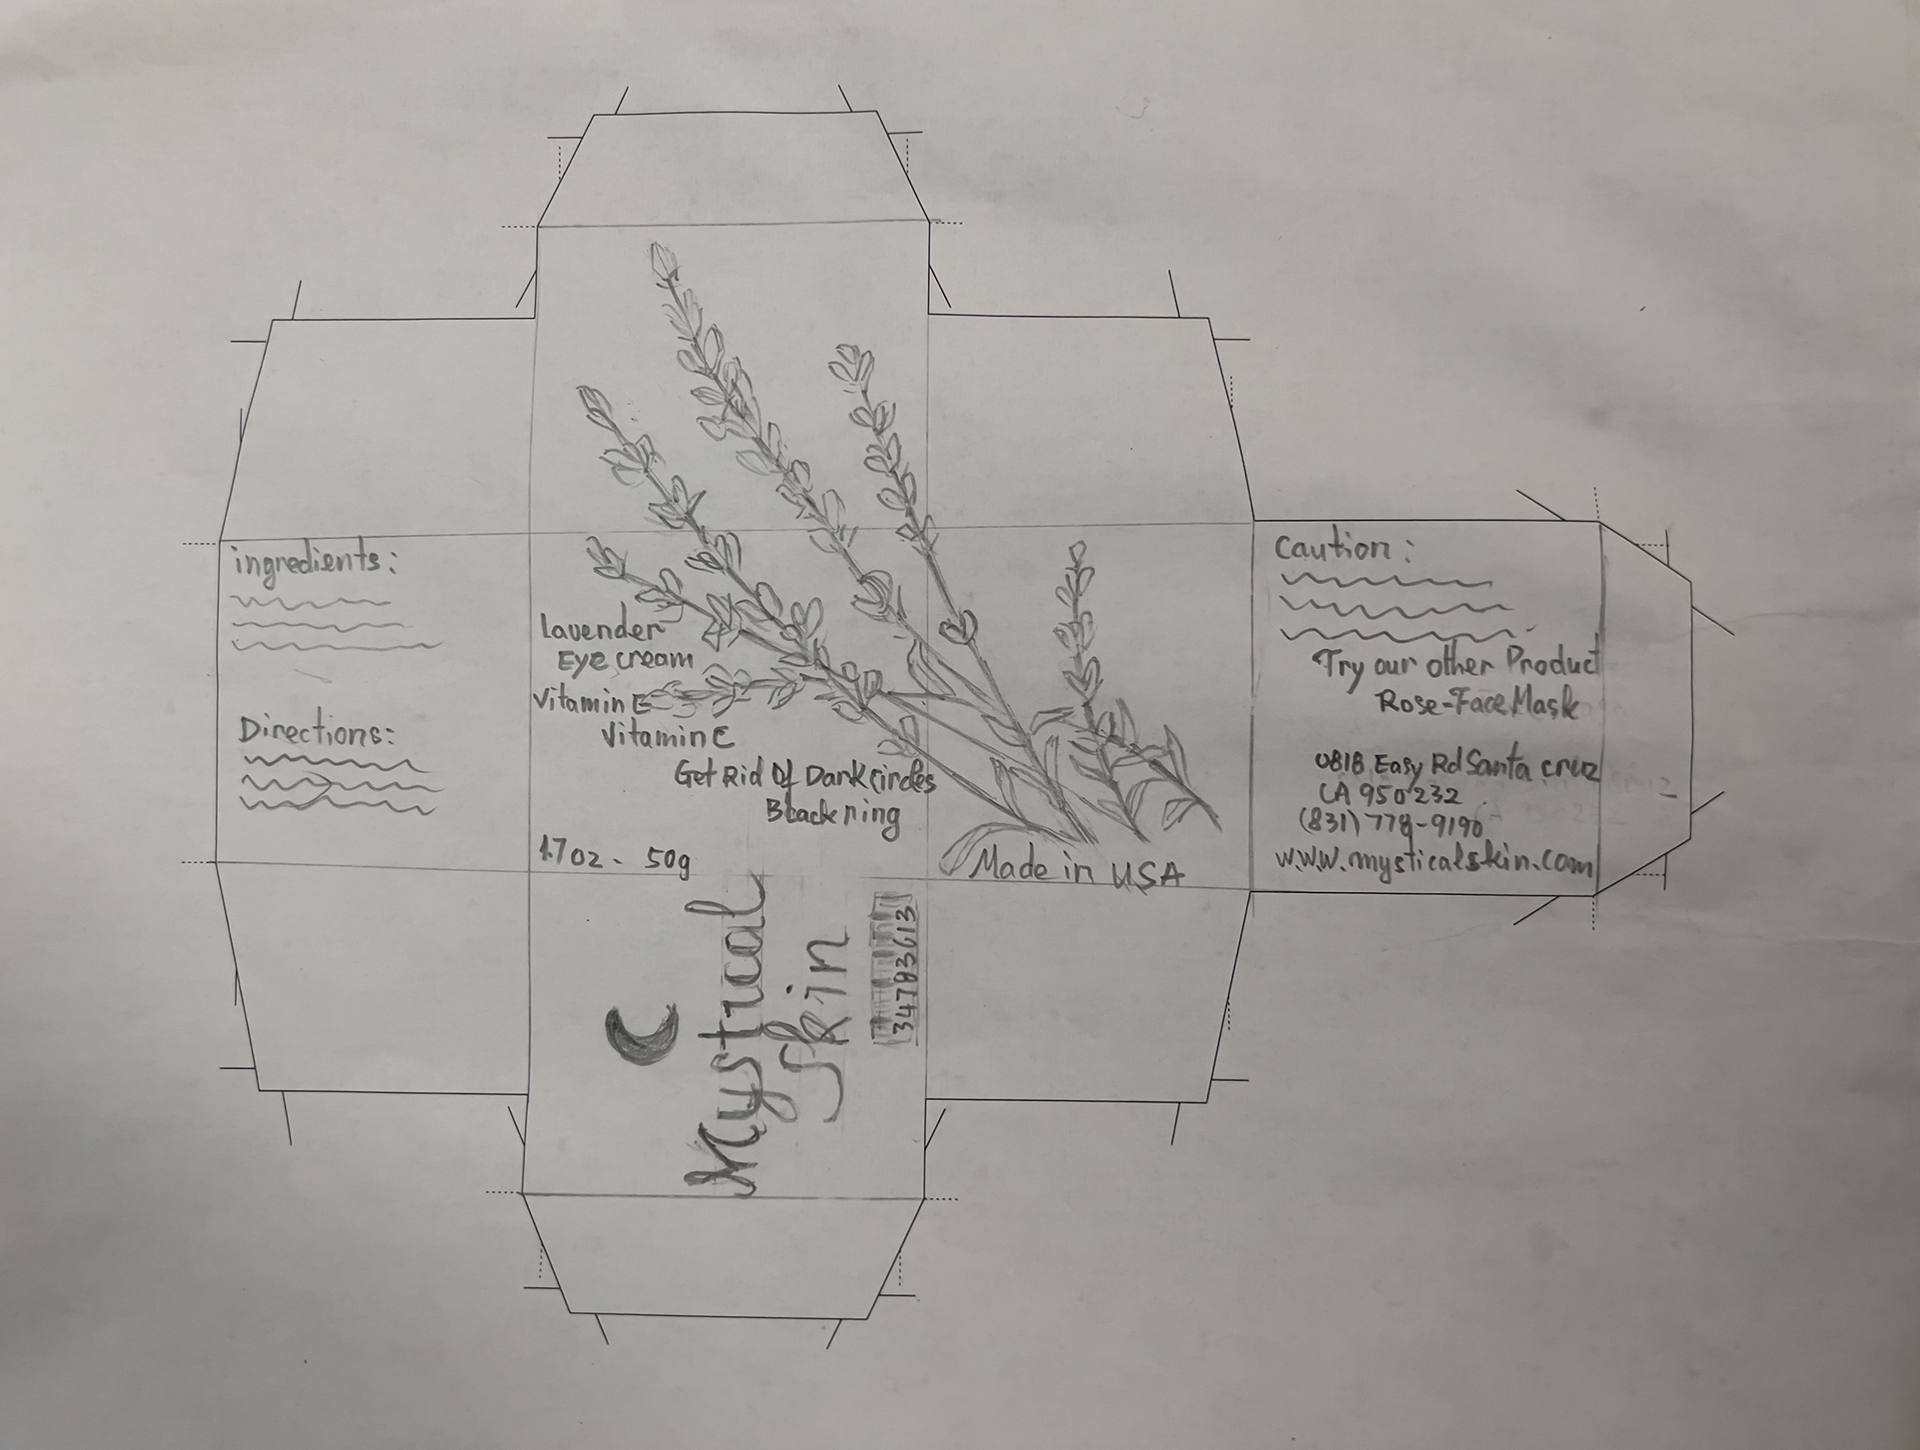 ingredients:
Directions:
Lavender
Eye cream
Vitamin E
Vitamin C
Get Rid Of Dark Circles
Black ring
1.7oz - 50g
Made in USA
Caution:
Try our other Product
Rose-Face Mask
0818 Easy Rd Santa Cruz
CA 950232
(831) 778-9190
www.mysticalskin.com
Mystical
Skin
34783613